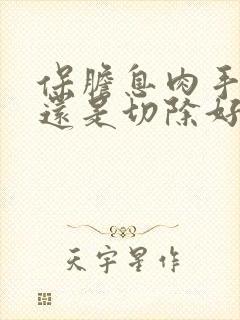 保膽息肉手
還是切除好
天宇星作